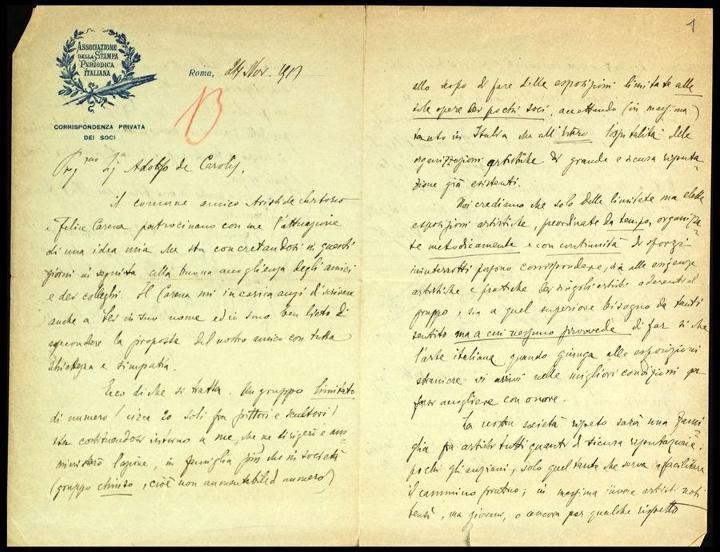 ASSOCIAZIONE
DELLA STAMPA
PERIODICA
ITALIANA
CORRISPONDENZA PRIVATA
DEI SOCI
Roma, 24 Nov.
B
Adolfo de Carolis,
il comune amico Aristide Sartorio
e Felice Carena patrocinano con me l'attuazione
di una idea mia che sta concretandosi in questi
giorni in seguito alla buona accoglienza degli amici
e dei colleghi. Il Carena mi incarica anzi di scrivere
anche a Lei in suo nome ed io sono ben lieto di
secondare la proposta del nostro amico con tutta
schiettezza e simpatia.
Ecco di che si tratta. Un gruppo limitato
di numero (circa 20 soli fra pittori e scultori)
sta costituendosi intorno a me, che ne dirigerò e am-
ministrerò l'azione, in famiglia più che in società
(gruppo chiuso, cioè non aumentabile di numero)
1
allo scopo di fare delle esposizioni limitate alle
sole opere dei pochi soci, accettando (in massima)
tanto in Italia che all'estero l'ospitalità delle
organizzazioni artistiche di grande e sicura reputa-
zione già esistenti.
Noi crediamo che solo delle limitate ma elette
esposizioni artistiche, preordinate da tempo, organizza-
te metodicamente e con continuità di sforzi
ininterrotti possono corrispondere, sia alle esigenze
artistiche e pratiche dei singoli artisti aderenti al
gruppo, sia a quel superiore bisogno da tanti
sentito ma a cui nessuno provvede di far sì che
l'arte italiana quando giunga alle esposizioni
straniere vi arrivi nelle migliori condizioni per
farsi accogliere con onore.
La nostra società ripeto sarà una fami-
glia fra artisti tutti quanti di sicura reputazione;
pochi gli anziani, solo quel tanto che serva a facilitare
il cammino pratico; in massima invece artisti noti
bensì, ma giovani, o ancora per qualche rispetto